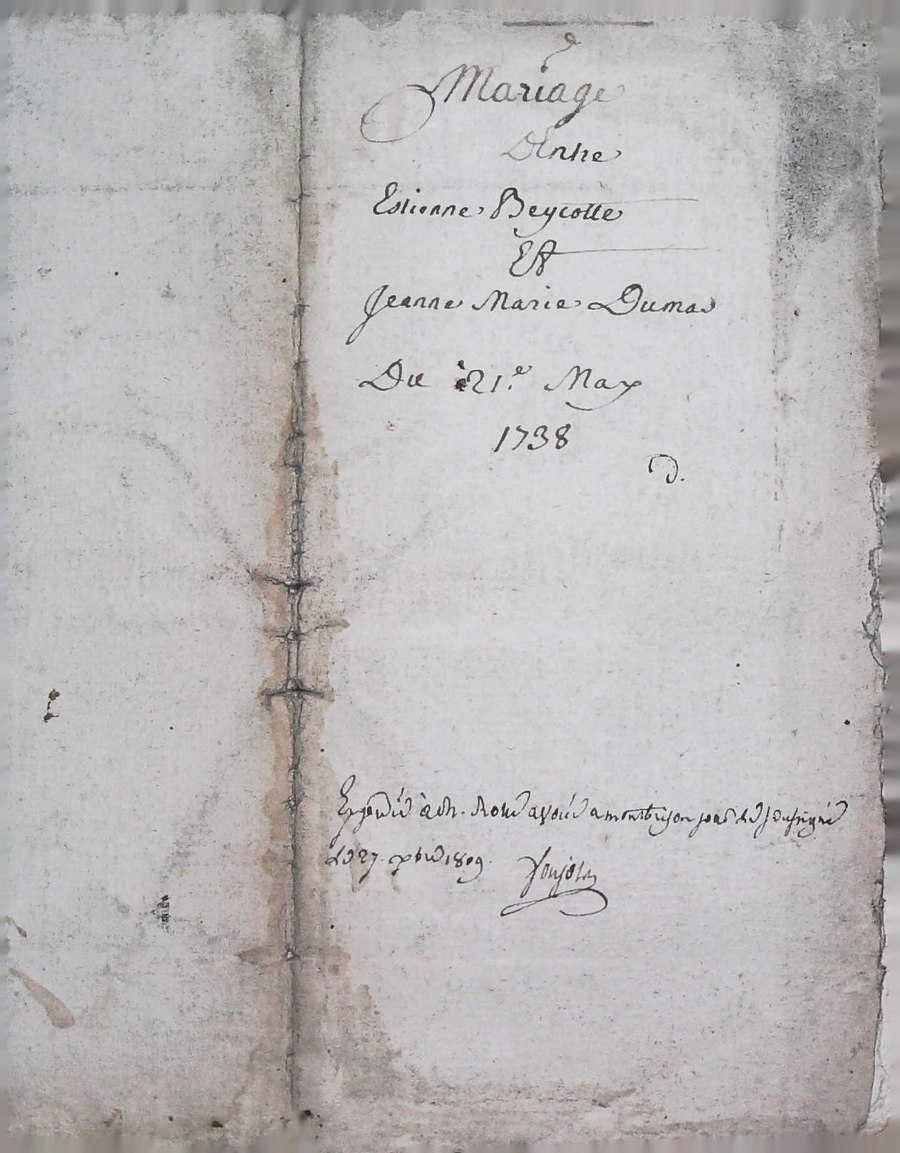 Mariage
D'Entre
Estienne Beycotte
Et
Jeanne Marie Dumas
Du 21.e May
1738
D.
Expedié à Mr. avoué a montbrison par le soussigné
Le 27 xbre 1809.